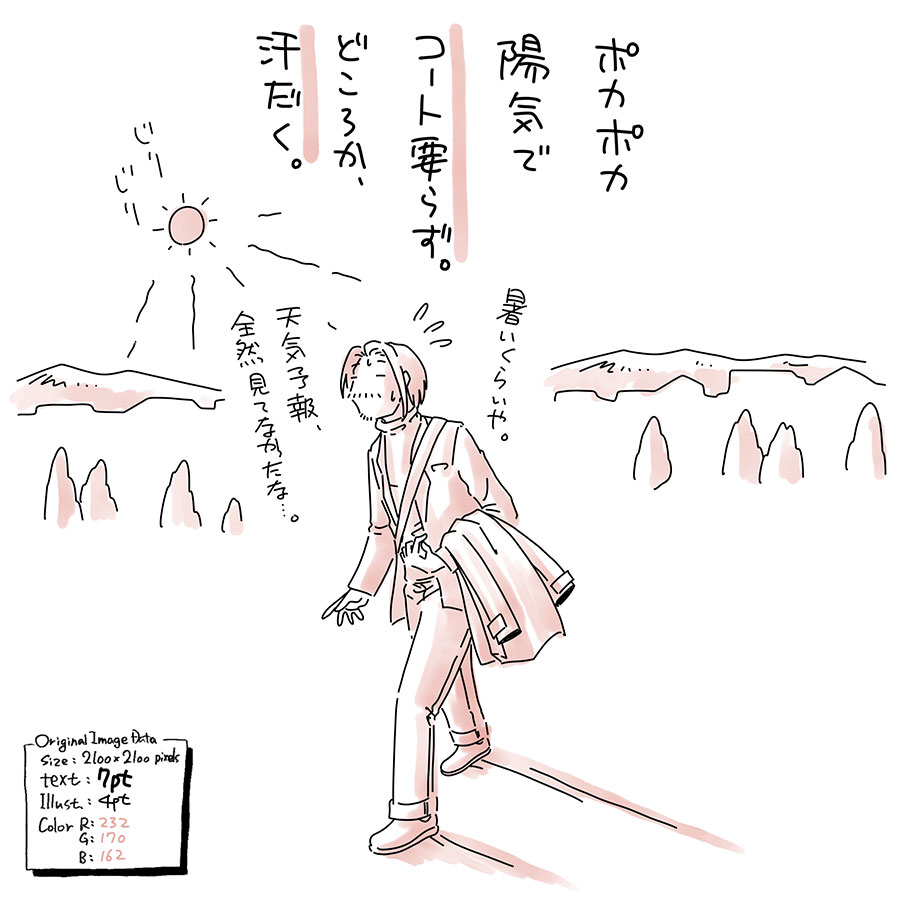 ポカポカ
陽気で
コート要らず。
どころか、
汗だく。
じりじり
暑いくらいや。
天気予報、
全然見てなかったな…。
Original Image Data
Size: 2100×2100 pixels
text: 7pt
Illust.: 4pt
Color R: 232
G: 170
B: 162